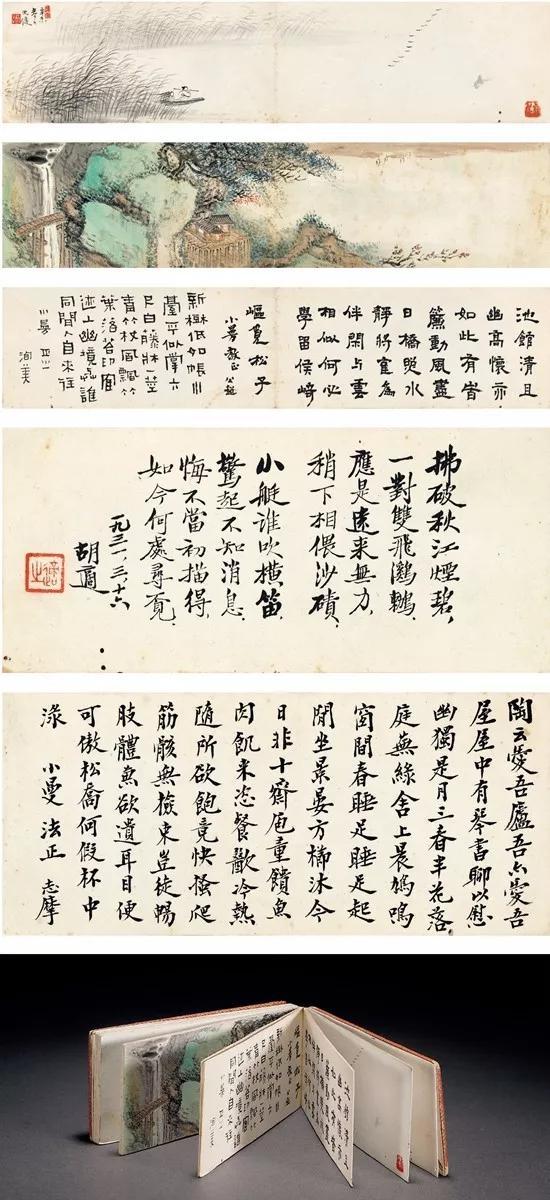 池館清且
幽高懷亦
如此有旹
簾動風盡
日橋照水
靜將寉為
伴閒與雲
相似何必
學留侯崎
嶇覓松子
小曼教正
新樹低如帳小
臺平似掌六
尺白藤牀一莖
青竹杖風飄竹
葉落苔印鶴
迹上幽境與誰
同閒人自來往
小曼 正之
洵美
拂破秋江煙碧，
一對雙飛鸂鶒，
應是遠來無力，
稍下相偎沙磧，
小艇誰吹橫笛，
驚起不知消息，
悔不當初描得，
如今何處尋覓，
一九三一，三，十六
胡適
陶云愛吾廬吾亦愛吾
屋屋中有琴書聊以慰
幽獨是月三春半花落
庭蕪綠舍上晨鳩鳴
窗間春睡足睡足起
閒坐景晏方櫛沐今
日非十齋庖童饋魚
肉飢來恣餐歠冷熱
隨所欲飽竟快搔爬
筋骸無檢束豈徒暢
肢體兼欲遺耳目便
可傲松喬何假杯中
淥 小曼 法正 志摩